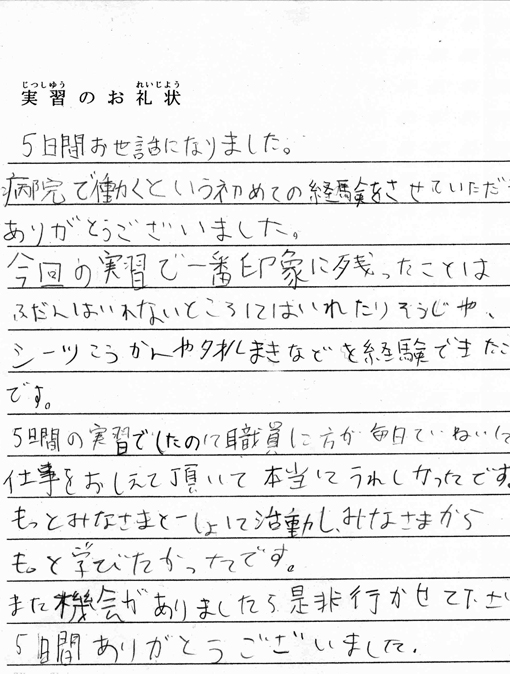 じっしゅう れいじょう
実習のお礼状
5日間お世話になりました。
病院で働くという初めての経験をさせていただ
ありがとうございました。
今回の実習で一番印象に残ったことは
ふだんはいれないところにはいれたりそうじや、
シーツこうかんや水まきなどを経験できたこ
です。
5日間の実習でしたのに職員に方が毎日ていねいに
仕事をおしえて頂いて本当にうれしかったです。
もっとみなさまと一しょに活動し、みなさまから
もっと学びたかったです。
また機会がありましたら是非行かせてださい
5日間ありがとうございました.